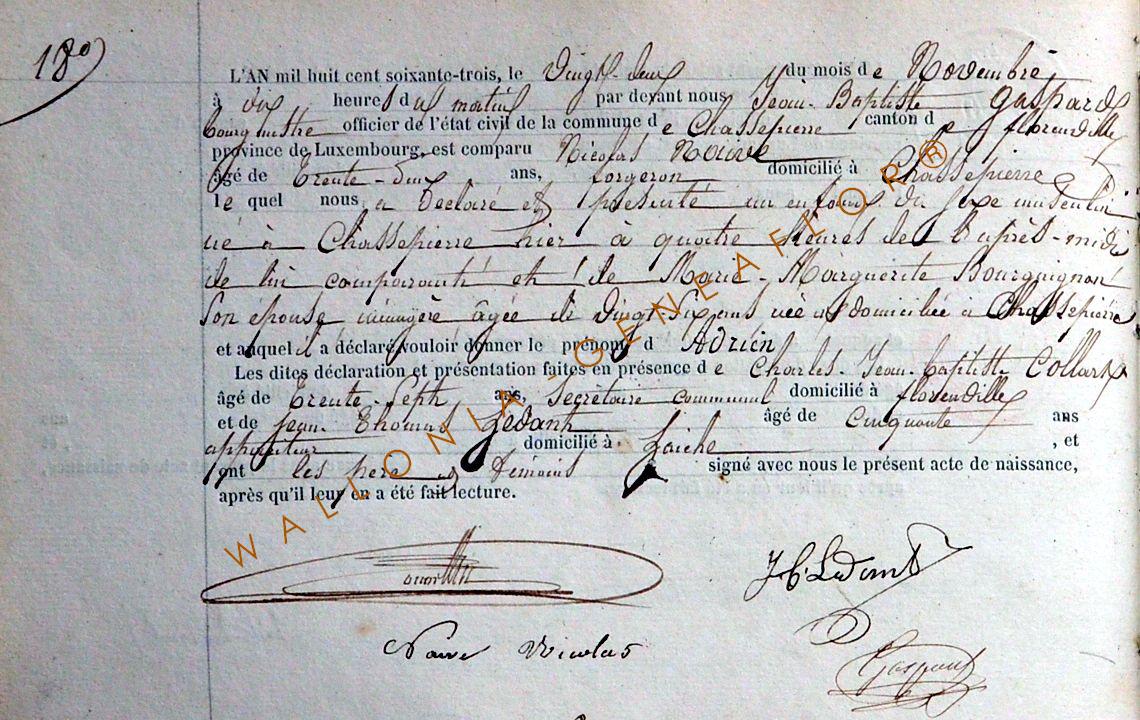 18°
L'AN mil huit cent soixante-trois, le Vingt-deux du mois de Novembre
à dix heures du matin par devant nous Jean-Baptiste Gaspard
bourgmestre officier de l'état civil de la commune de Chassepierre canton de florenville
province de Luxembourg, est comparu Nicolas
âgé de trente-deux ans, forgeron domicilié à Chassepierre
lequel nous a déclaré et présenté un enfant du sexe masculin
né à Chassepierre hier à quatre heures de l'après-midi
de lui comparant et de Marie-Marguerite Bourguignon
Son épouse ménagère âgée de vingt-six ans née et domiciliée à Chassepierre
et auquel il a déclaré vouloir donner le prénom d Adrien
Les dites déclaration et présentation faites en présence de Charles-Jean-baptiste Collart
âgé de trente-sept ans, Secrétaire communal domicilié à florenville
et de Jean-Thomas Ledant âgé de cinquante ans
domicilié à Laiche , et
ont les père et témoins signé avec nous le présent acte de naissance,
après qu'il leur en a été fait lecture.
Ledant
Nicolas
Gaspard
WALLONIA-GENEAFLOR®